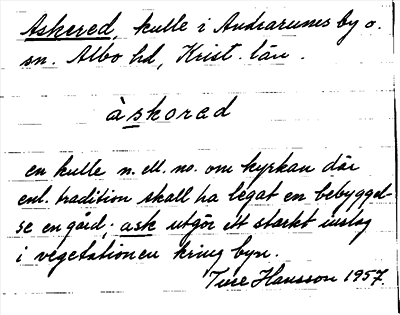 Askered, kulle i Andrarums by o.
sn. Albo hd, Krist. län.
àskorad
en kulle n. ell. no. om kyrkan där
enl. tradition skall ha legat en bebyggel-
se en gård; ask utgör ett starkt inslag
i vegetationen kring byn.
Ture Hansson 1957.